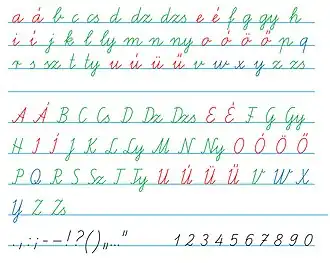 a á b c cs d dz dzs e é f g gy h
i í j k l ly m n ny o ó ö ő p q
r s sz t ty u ú ü ű v w x y z zs
A Á B C Cs D Dz Dzs E É F G Gy
H I Í J K L Ly M N Ny O Ó Ö Ő
P Q R S Sz T Ty U Ú Ü Ű V W X
Y Z Zs
. , : ; - – ! ? ( ) „ ... ” 1 2 3 4 5 6 7 8 9 0